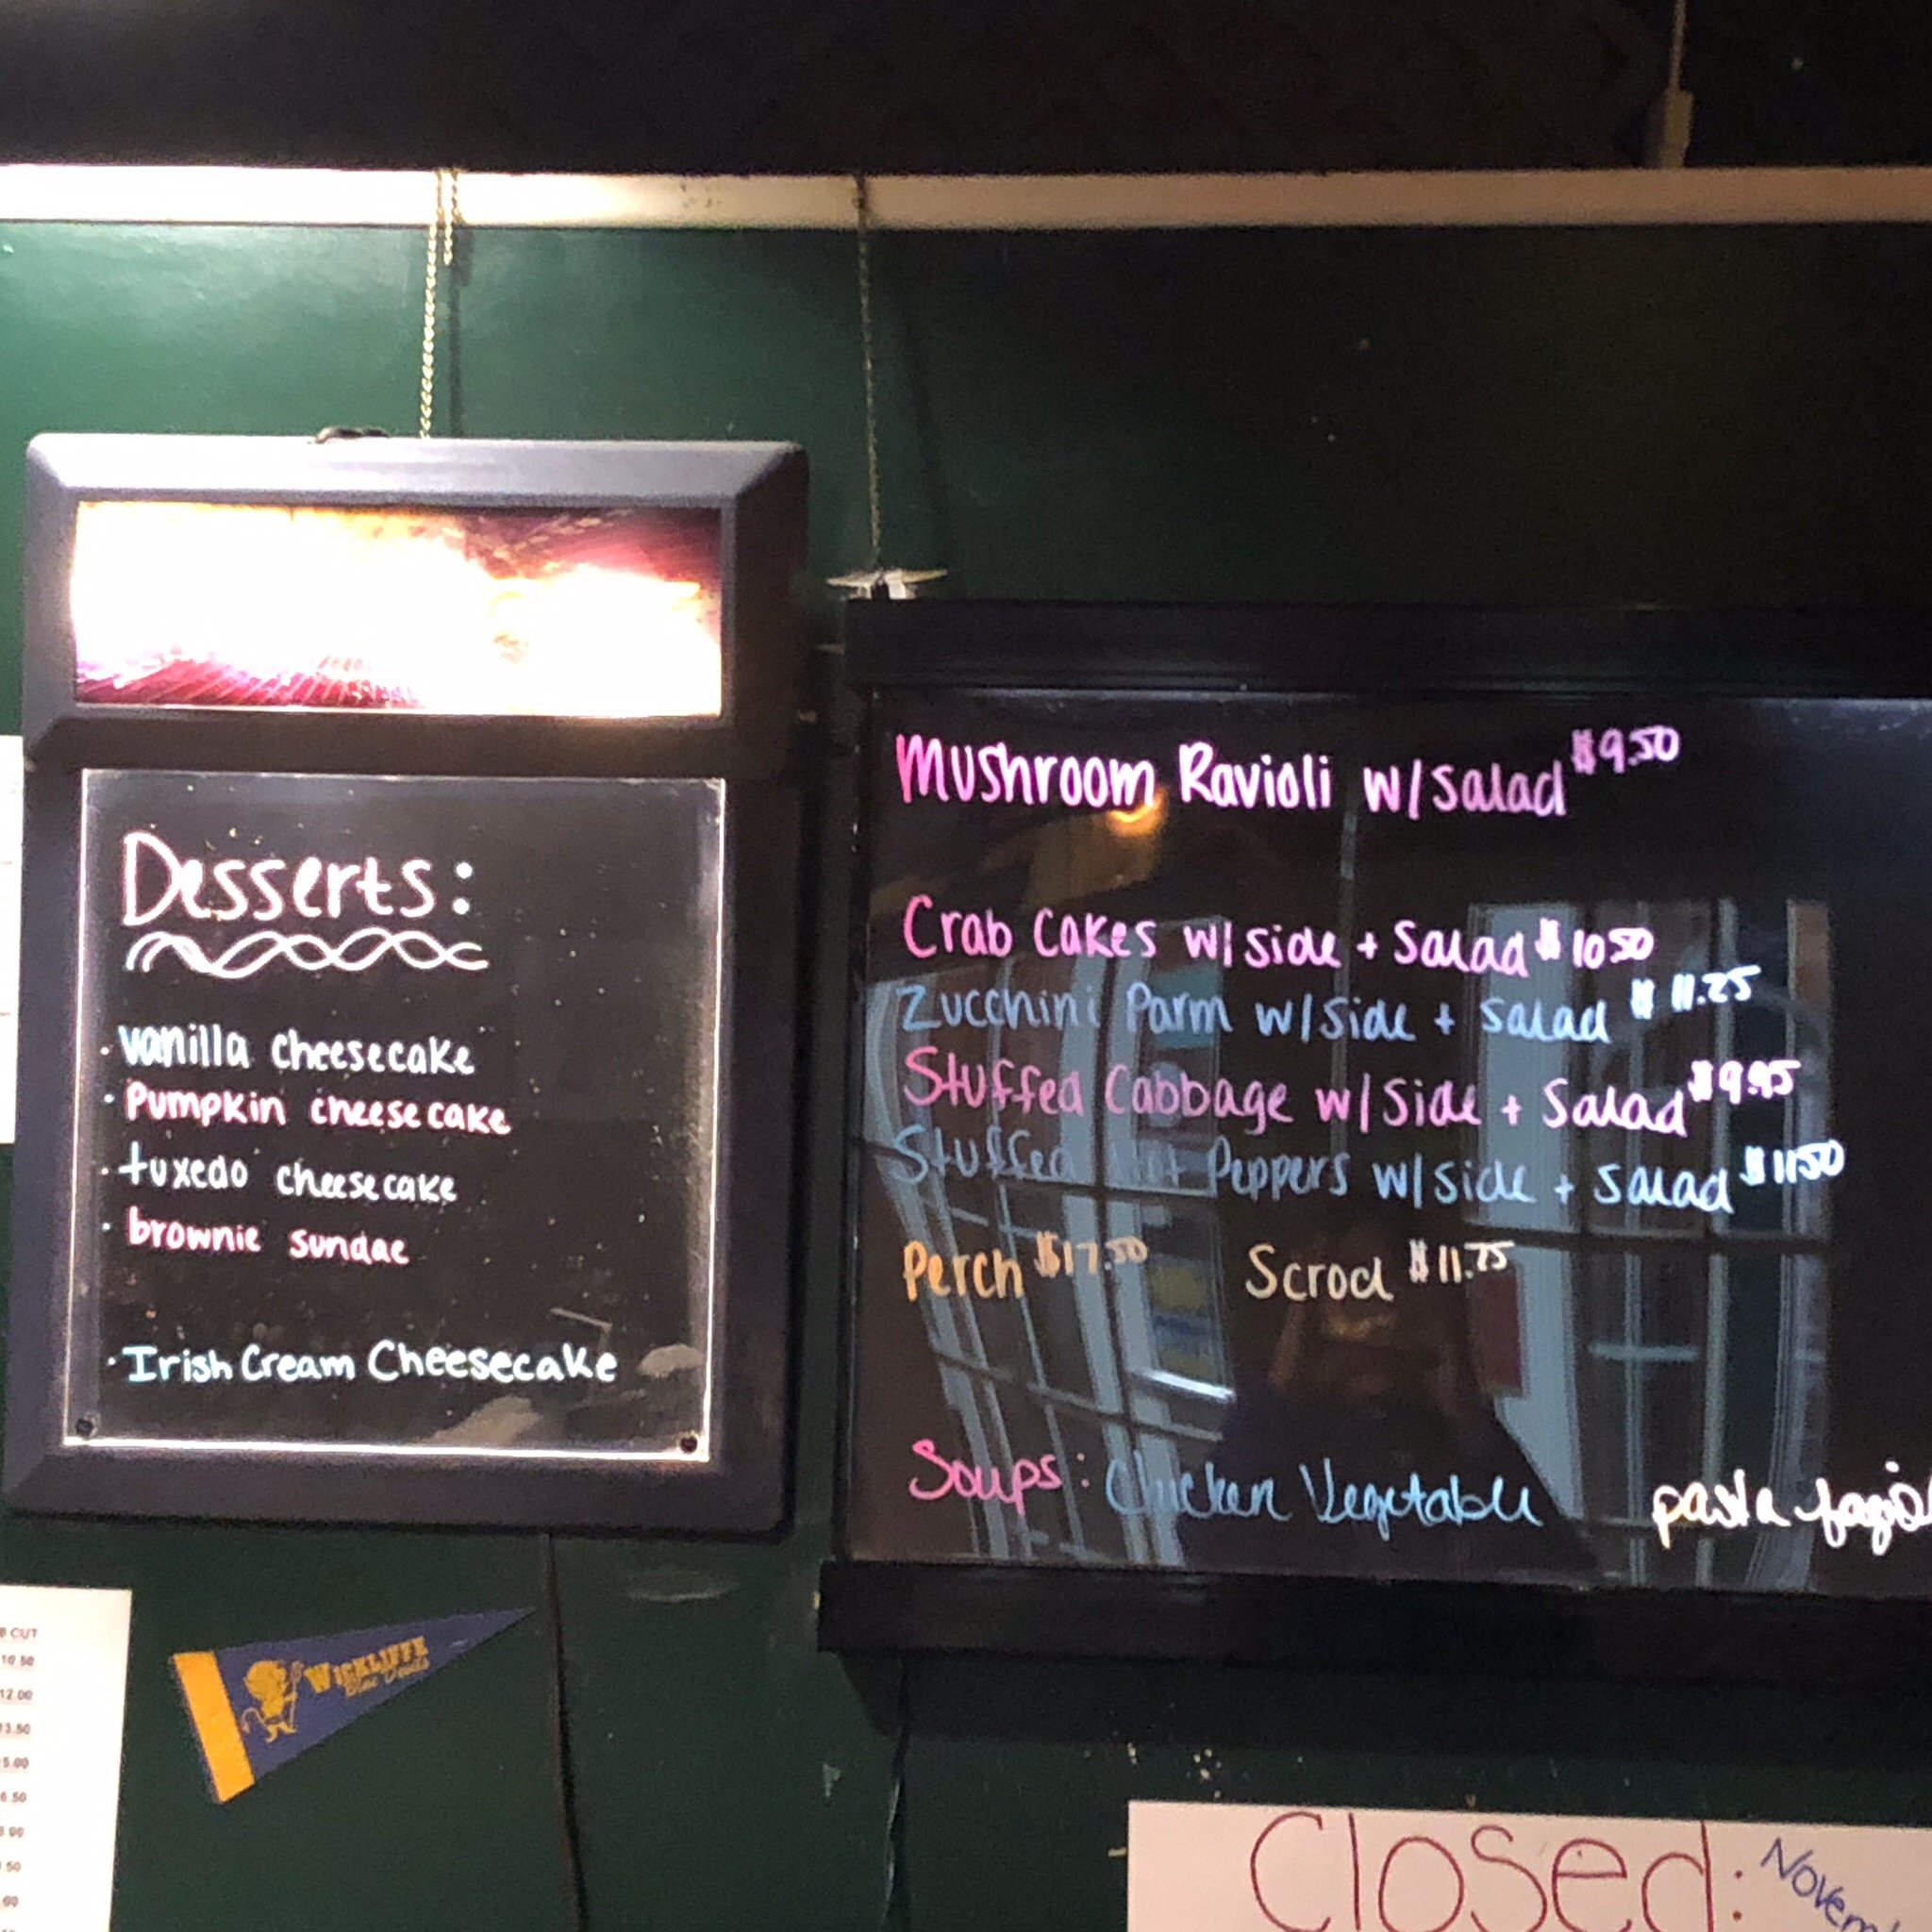 Desserts:
· vanilla cheesecake
· Pumpkin cheesecake
· tuxedo cheesecake
· brownie sundae
· Irish Cream Cheesecake
Mushroom Ravioli w/salad $9.50
Crab Cakes w/ side + Salad $10.50
Zucchini Parm w/side + Salad $11.25
Stuffed Cabbage w/ Side + Salad $9.95
Stuffed Hot Peppers w/side + Salad $11.50
Perch $17.50 Scrod $11.75
Soups: Chicken Vegetable pasta
WICKLIFFE
Blue Devils
CUT
10.50
12.00
3.50
5.00
6.50
.50
Closed: